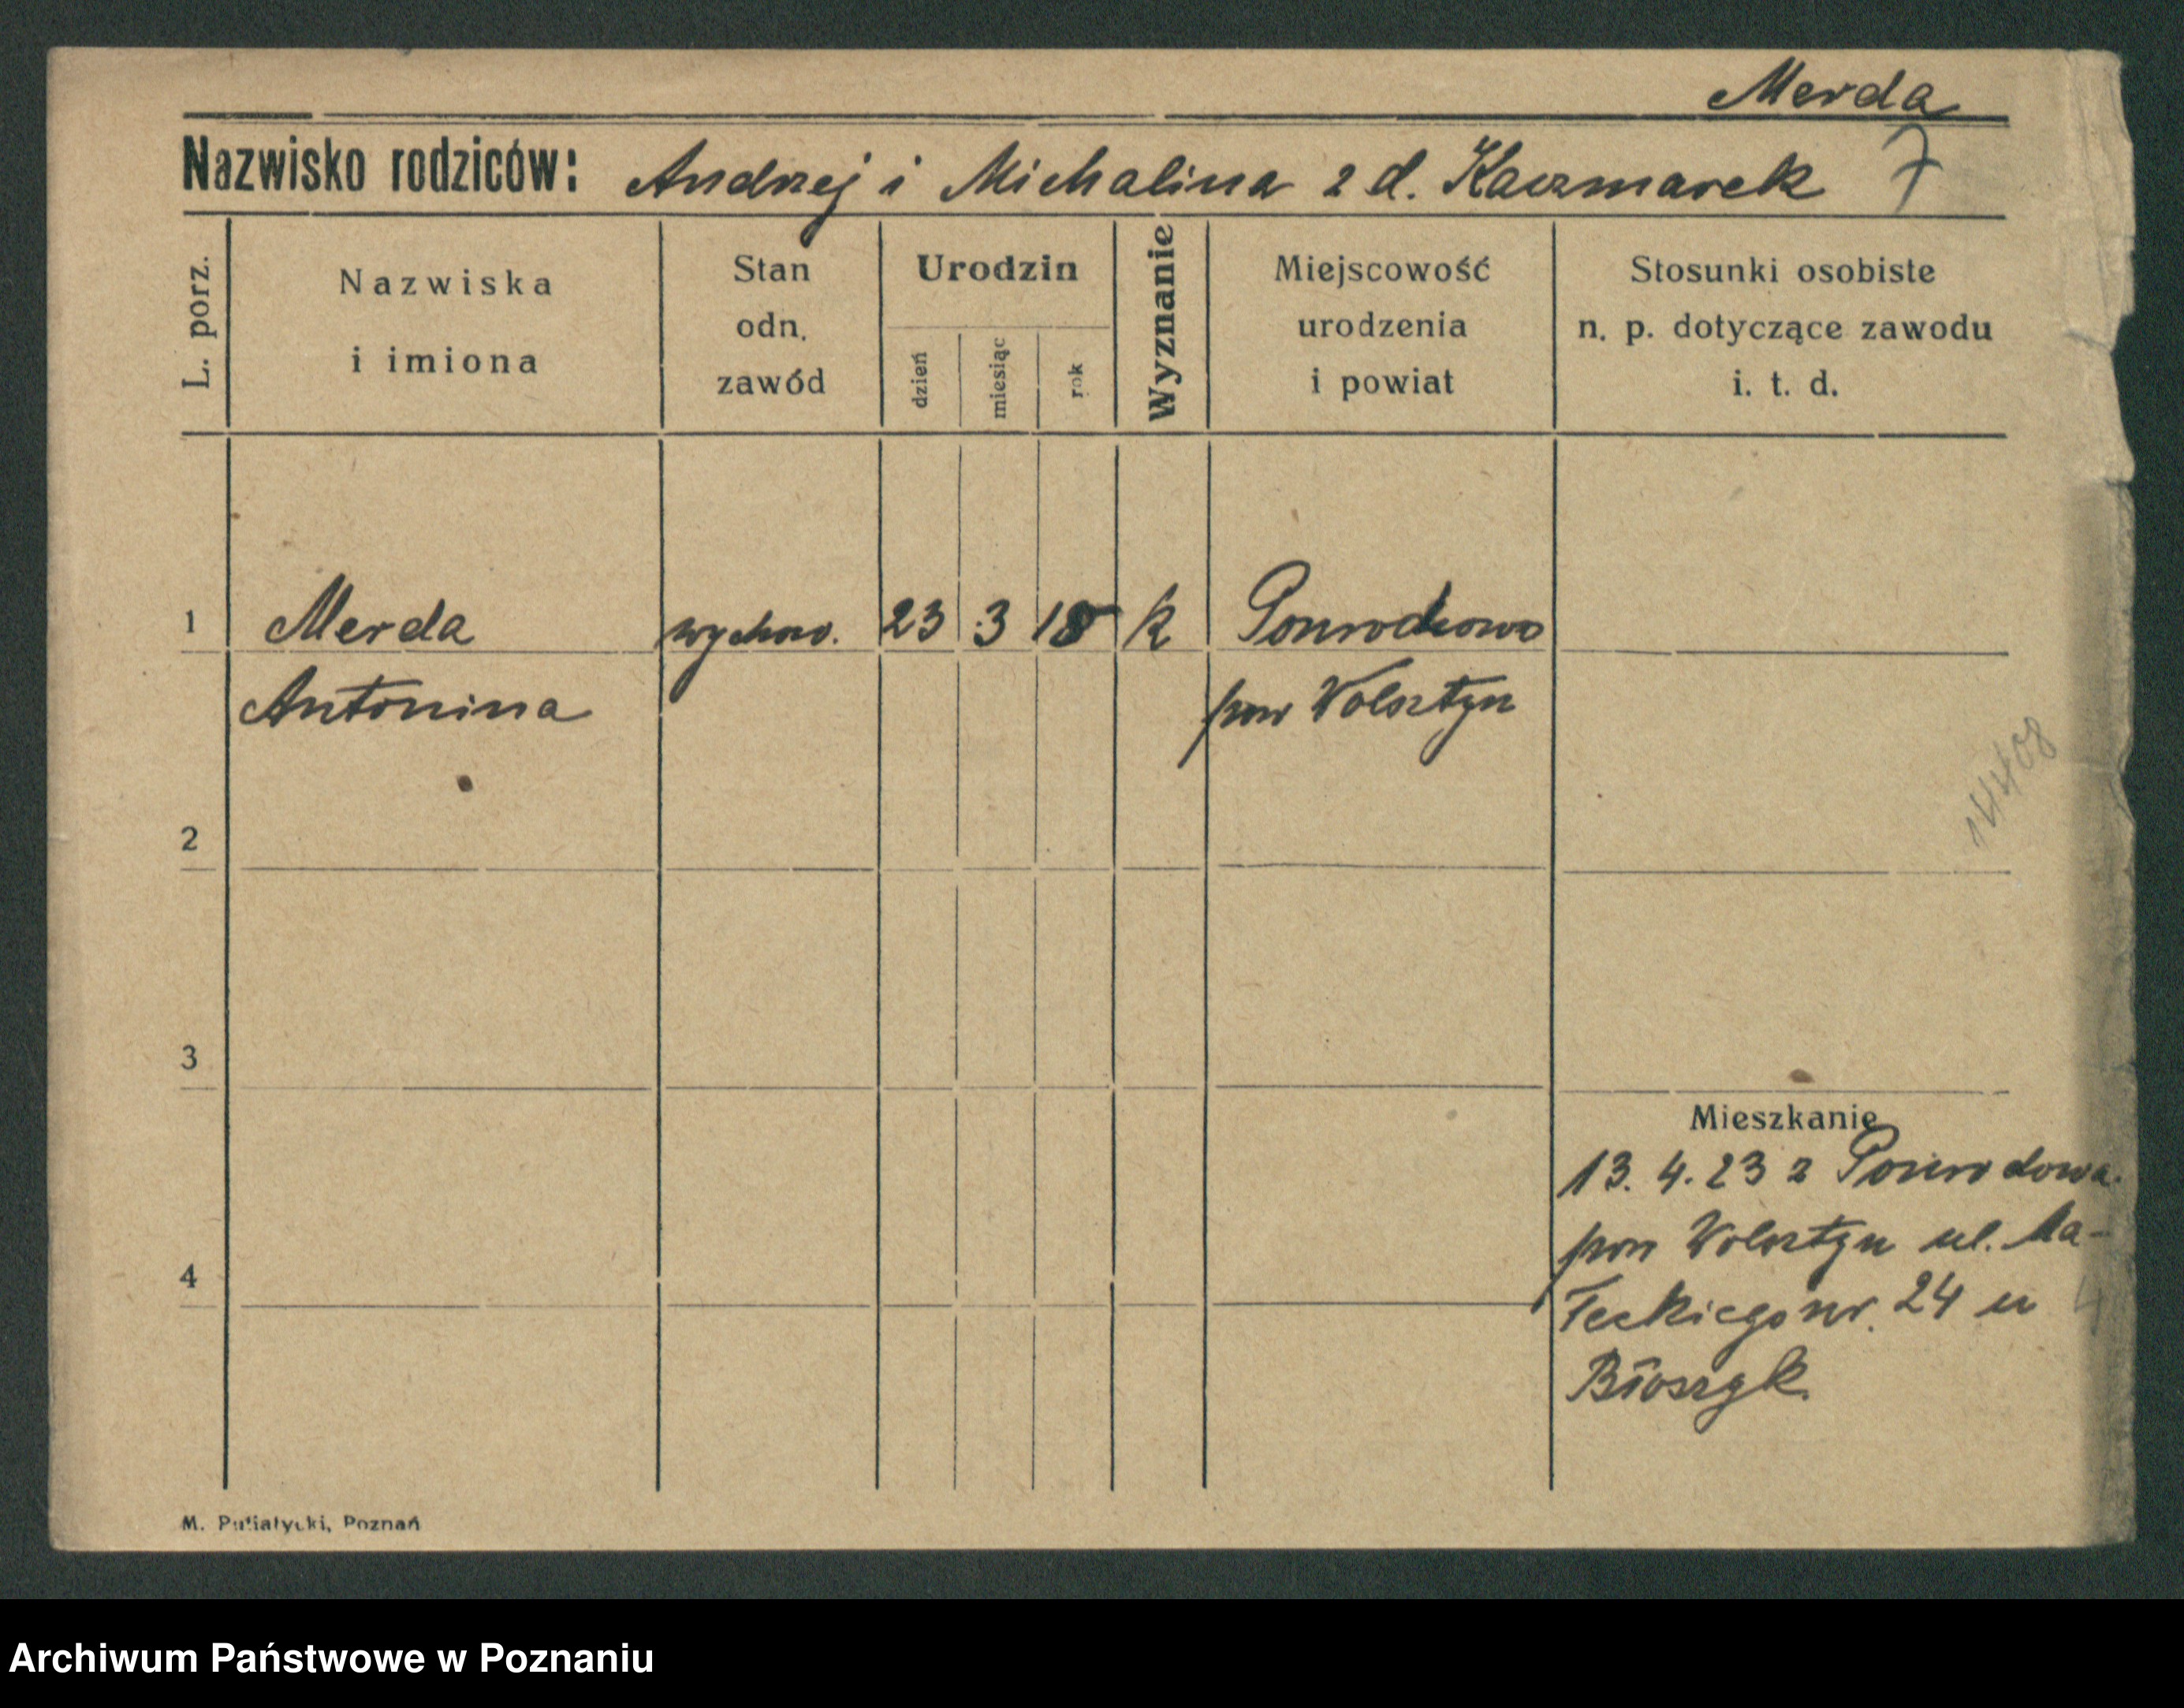 Merda
Nazwisko rodziców: Andrzej i Michalina z d. Kaczmarek 7
L. porz.
Nazwiska
i imiona
Stan
odn.
zawód
Urodzin
dzień
miesiąc
rok
Wyznanie
Miejscowość
urodzenia
i powiat
Stosunki osobiste
n. p. dotyczące zawodu
i. t. d.
1 Merda wychow. 23 3 18 k
Antonina pow Wolsztyn
14408
2
3
Mieszkanie
13. 4. 23 z
pow Wolsztyn ul. Ma-
teckiego nr. 24 u
4
M. Putiatycki, Poznań
Archiwum Państwowe w Poznaniu